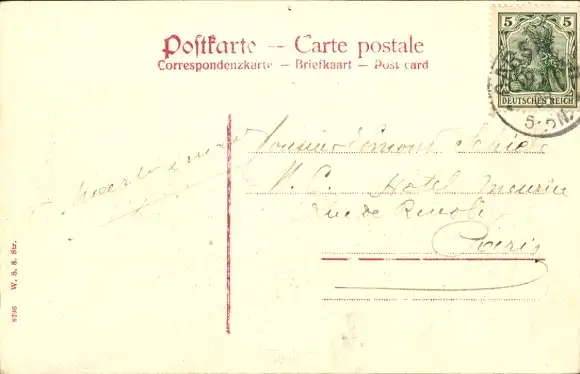 Postkarte — Carte postale
Correspondenzkarte — Briefkaart — Post card
5 5
DEUTSCHES REICH
5-6N.
Monsieur Edmond
Hotel Meurice
rue de Rivoli
Paris
W. S. S. Str.
8795